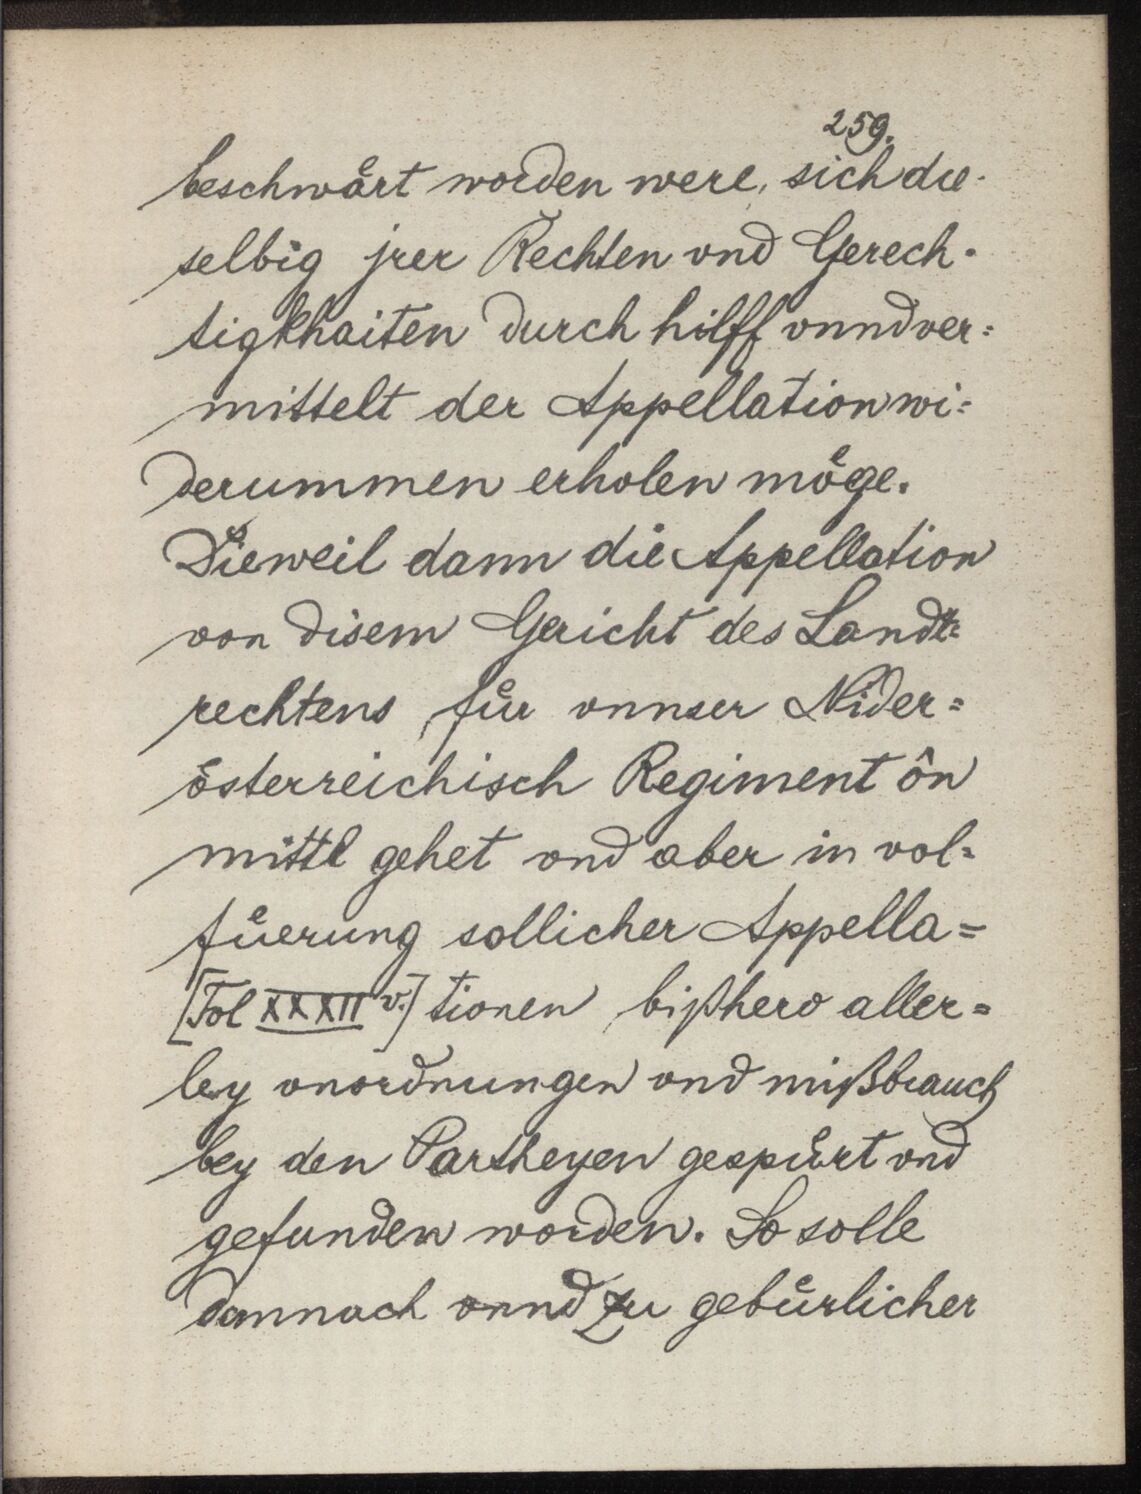 259.
beschwärt worden were, sich die-
selbig jrer Rechten vnd Gerech-
tigkhaiten durch hilff vnnd ver=
mittelt der Appellation wi=
derummen erholen möge.
Dieweil dann die Appellation
von disem Gericht des Landt=
rechtens für vnnser Nider=
österreichisch Regiment ôn
mittl gehet vnd aber in vol=
füerung sollicher Appella=
[Fol XXXII v.] tionen bißhero aller=
ley vnordnungen vnd mißbrauch
bey den Partheyen gespürt vnd
gefunden worden. So solle
dannach vnnd zu gebürlicher